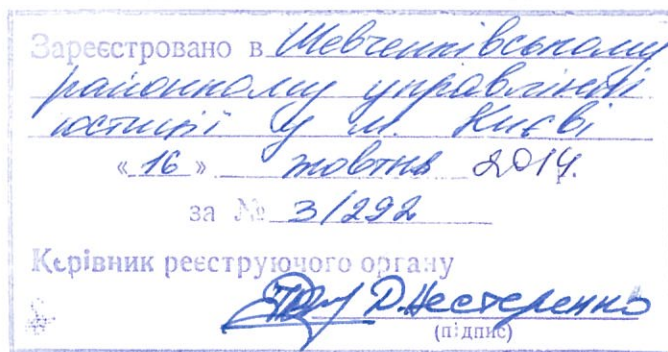 Зареєстровано в Шевченківському
районному управлінні
юстиції у м. Києві
« 16 » жовтня 2014.
за № 3/292
Керівник реєструючого органу
Д.Нестеренко
(підпис)